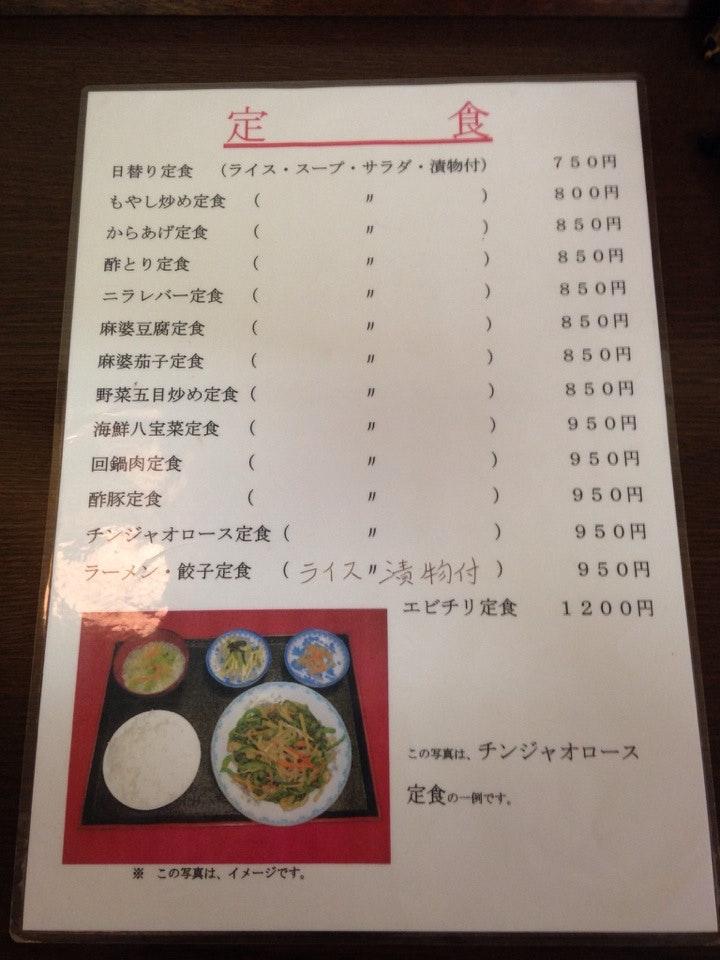 定食
日替り定食 (ライス・スープ・サラダ・漬物付) 750円
もやし炒め定食 ( 〃 ) 800円
からあげ定食 ( 〃 ) 850円
酢とり定食 ( 〃 ) 850円
ニラレバー定食 ( 〃 ) 850円
麻婆豆腐定食 ( 〃 ) 850円
麻婆茄子定食 ( 〃 ) 850円
野菜五目炒め定食 ( 〃 ) 850円
海鮮八宝菜定食 ( 〃 ) 950円
回鍋肉定食 ( 〃 ) 950円
酢豚定食 ( 〃 ) 950円
チンジャオロース定食 ( 〃 ) 950円
ラーメン・餃子定食 ( ライス〃漬物付 ) 950円
エビチリ定食 1200円
この写真は、チンジャオロース
定食の一例です。
※ この写真は、イメージです。